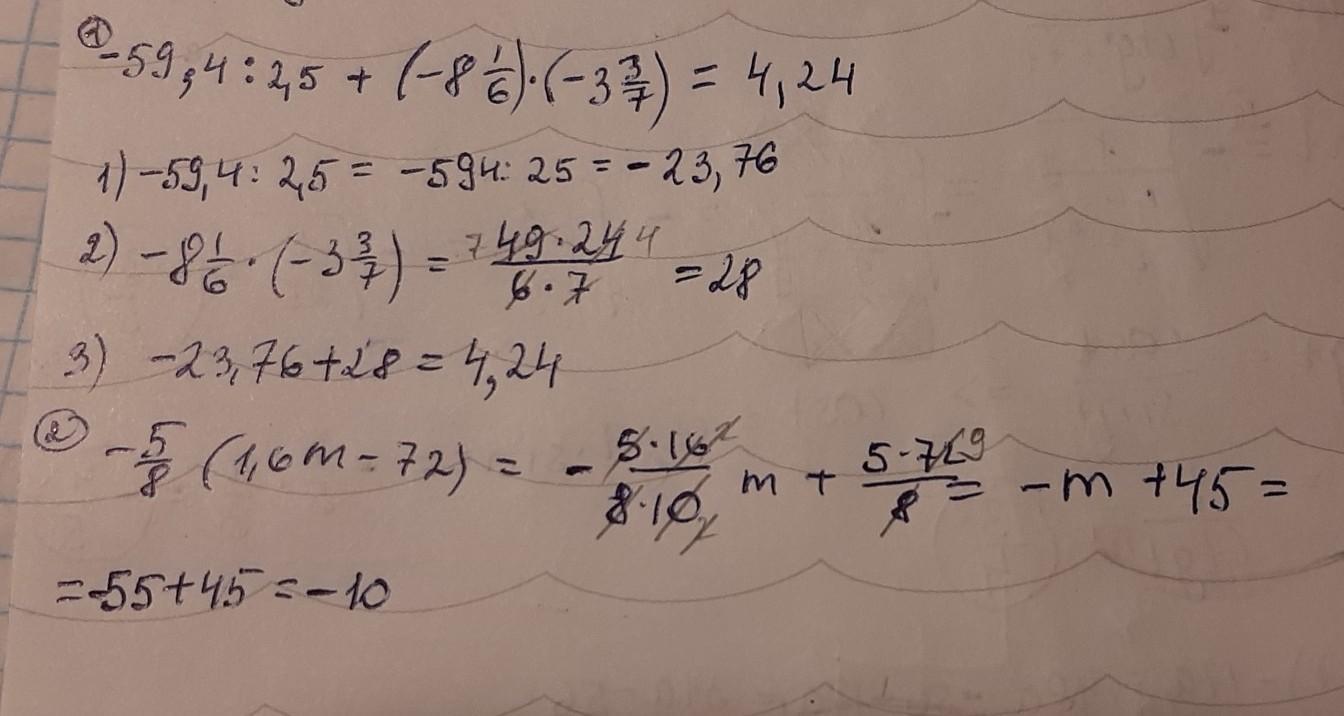 ① -59,4 : 2,5 + (-8 1/6) · (-3 3/7) = 4,24
1) -59,4 : 2,5 = -594 : 25 = -23,76
2) -8 1/6 · (-3 3/7) = 7 49·24 4 / 6·7 = 28
3) -23,76 + 28 = 4,24
② -5/8 (1,6m - 72) = - 5·16 2 / 8·10 2 m + 5·72 9 / 8 = -m + 45 =
= -55 + 45 = -10